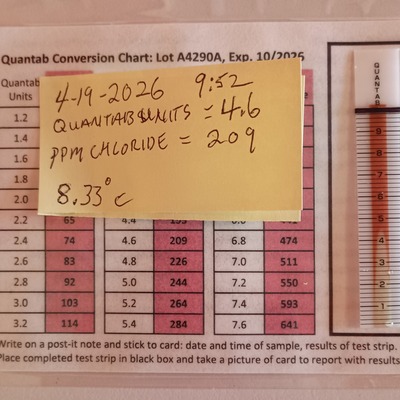 Quantab Conversion Chart: Lot A4290A, Exp. 10/2026
Quantab
Units
4-19-2026 9:52
QUANTAB UNITS = 4.6
PPM CHLORIDE = 209
8.33° C
1.2
1.4
1.6
1.8
2.0
2.2 65 4.4
2.4 74 4.6 209 6.8 474
2.6 83 4.8 226 7.0 511
2.8 92 5.0 244 7.2 550
3.0 103 5.2 264 7.4 593
3.2 114 5.4 284 7.6 641
Write on a post-it note and stick to card: date and time of sample, results of test strip.
Place completed test strip in black box and take a picture of card to report with results
QUANTAB
9
8
7
6
5
4
3
2
1